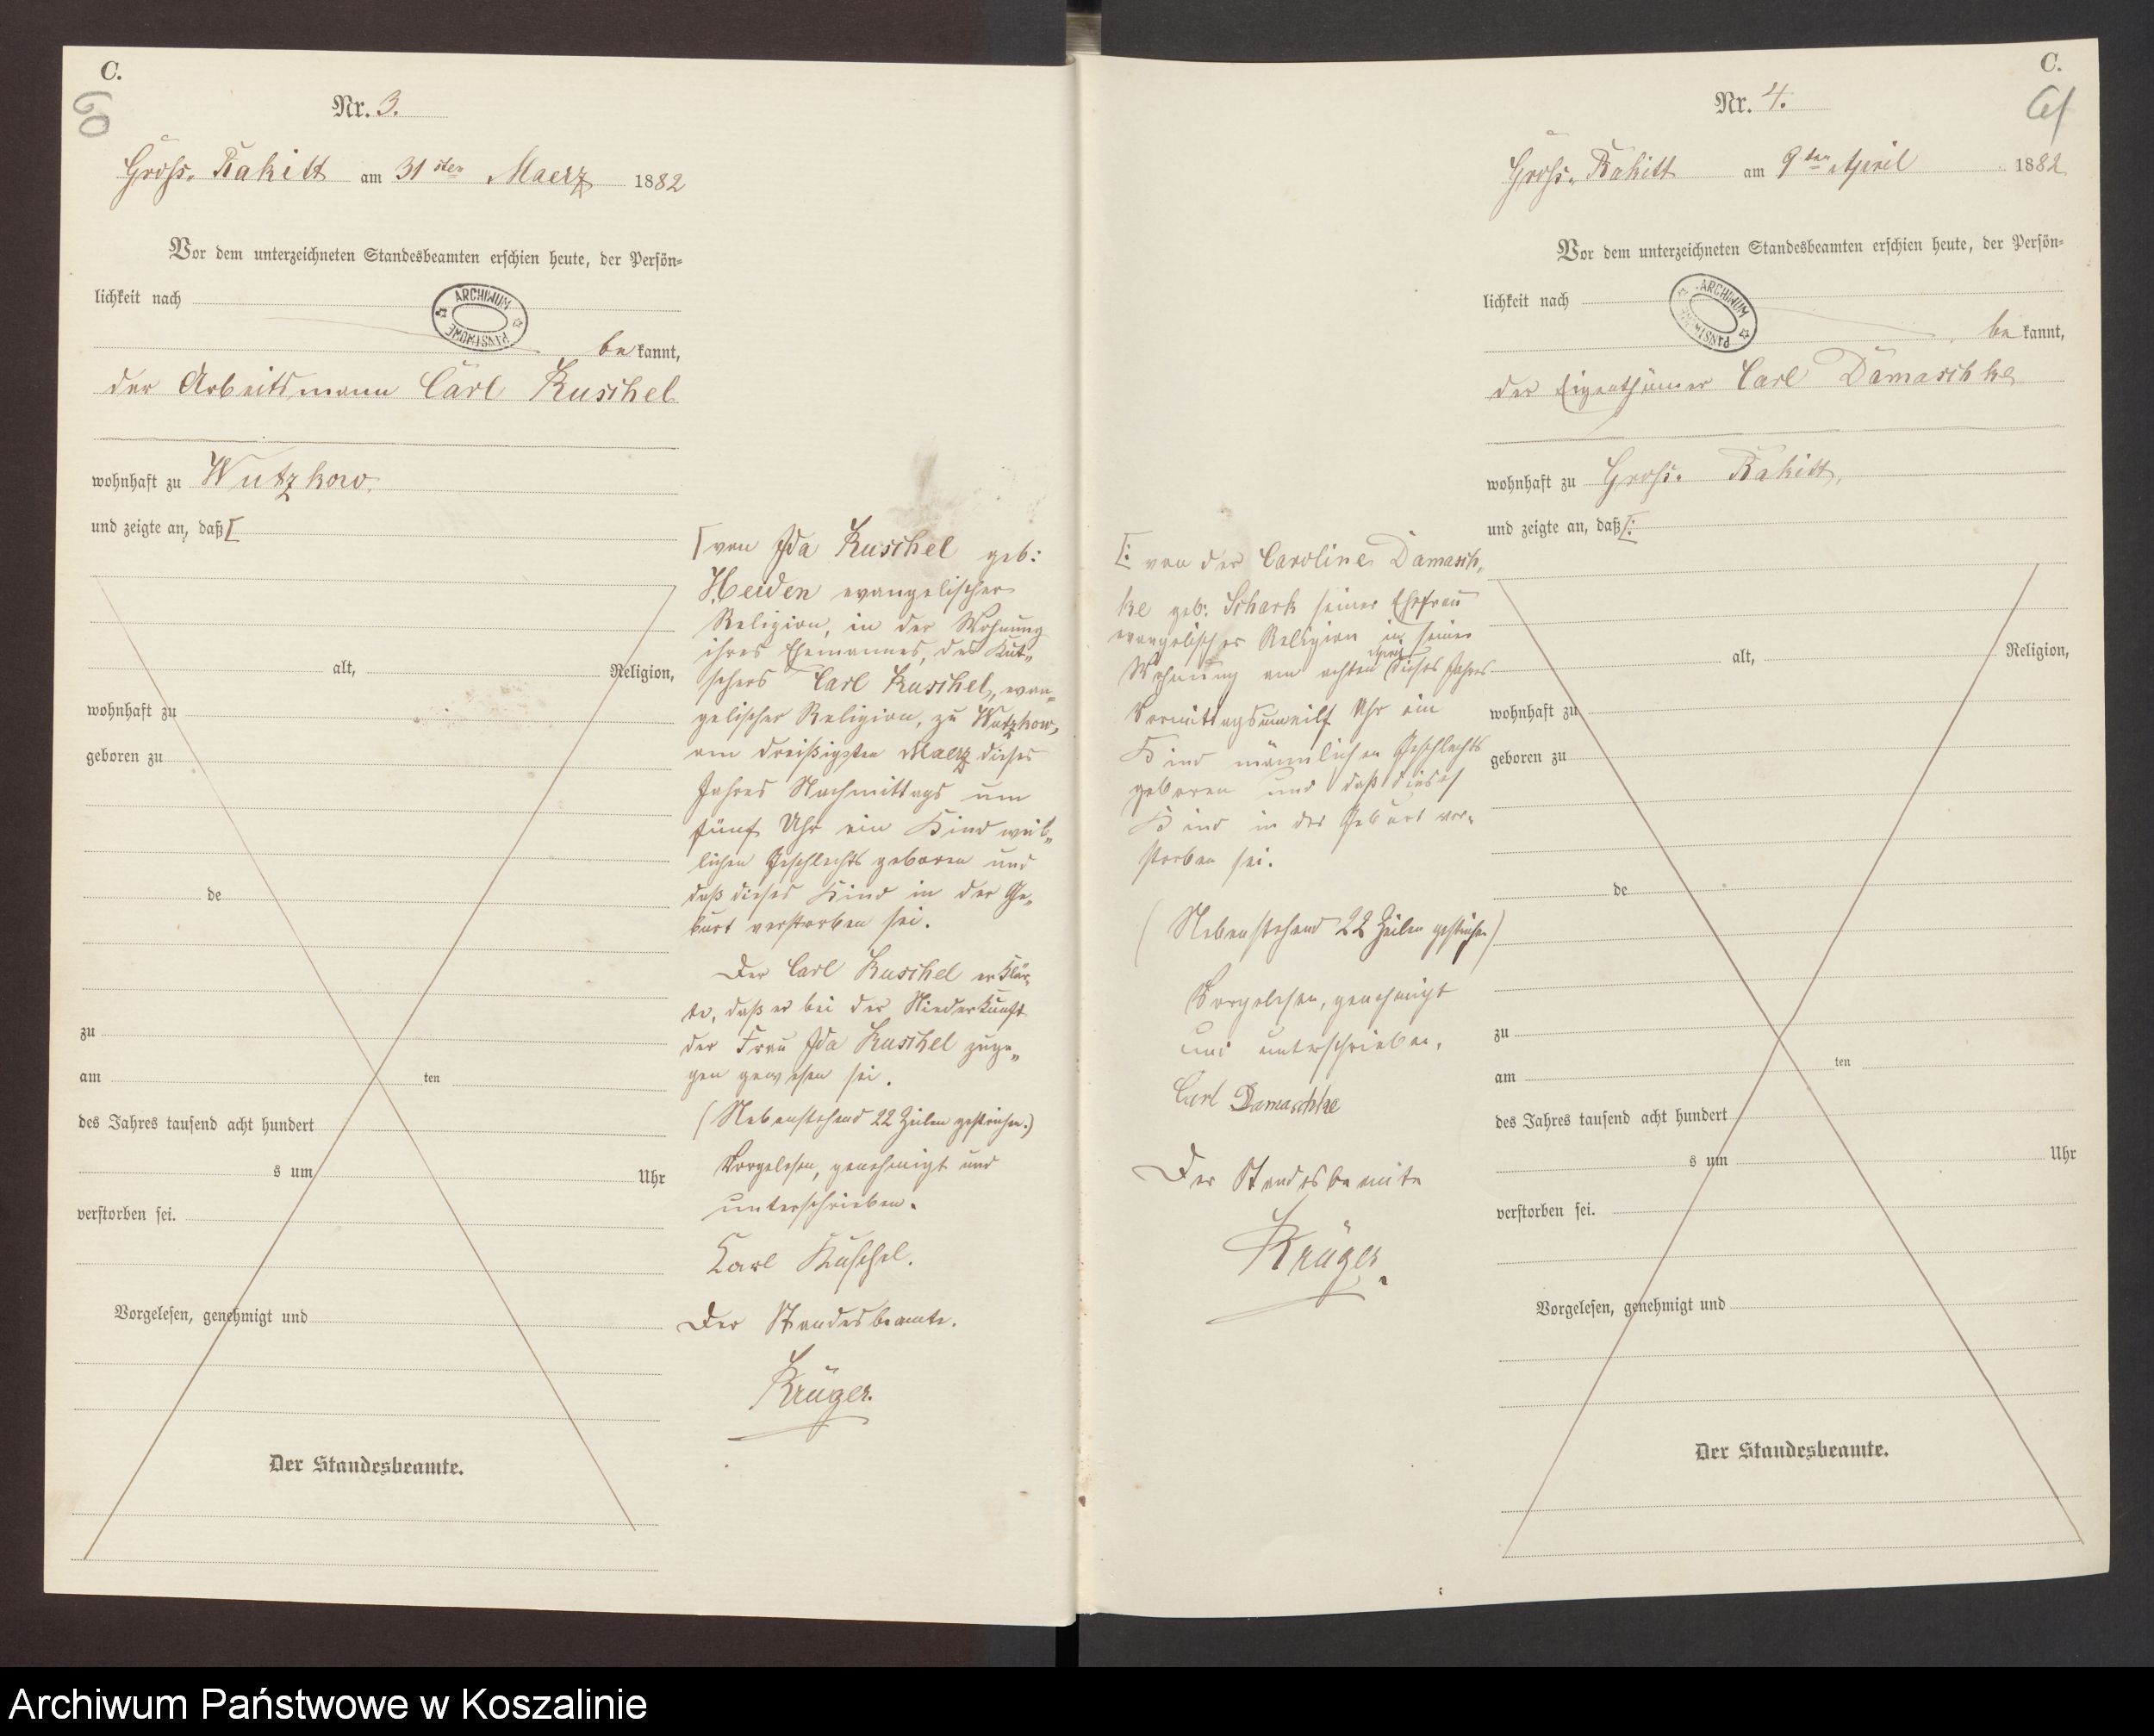 C.
60
Nr. 3.
Gross-Rakitt am 31sten Maerz 1882
Vor dem unterzeichneten Standesbeamten erschien heute, der Persön-
lichkeit nach
ARCHIWUM PAŃSTWOWE
bekannt,
der Arbeitsmann Carl Kuschel
wohnhaft zu Wutzkow.
und zeigte an, daß [
alt, Religion,
wohnhaft zu
geboren zu
de
zu
am ten
des Jahres tausend acht hundert
s um Uhr
verstorben sei.
Vorgelesen, genehmigt und
Der Standesbeamte.
[von Ida Kuschel geb:
Heiden evangelischer
Religion, in der Wohnung
ihres Ehemannes, des Kut„
schers Carl Kuschel, evan„
gelischer Religion, zu Wutzkow,
am dreißigsten Maerz dieses
Jahres Nachmittags um
fünf Uhr ein Kind weib„
lichen Geschlechts geboren und
daß dieses Kind in der Ge„
burt verstorben sei.
Der Carl Kuschel erklär„
te, daß er bei der Niederkunft
der Frau Ida Kuschel zuge„
gen gewesen sei.
(Nebenstehend 22 Zeilen gestrichen.)
Vorgelesen, genehmigt und
unterschrieben.
Carl Kuschel.
Der Standesbeamte.
Krüger.
C.
61
Nr. 4.
Gross-Rakitt am 9ten April 1882
Vor dem unterzeichneten Standesbeamten erschien heute, der Persön-
lichkeit nach
ARCHIWUM PAŃSTWOWE
bekannt,
der Eigenthümer Carl Damaschke
wohnhaft zu Gross-Rakitt,
und zeigte an, daß [:
[: von der Caroline Damasch„
ke geb: Schark seiner Ehefrau
evangelischer Religion in seiner
Wohnung am achten April dieses Jahres
Vormittags um eilf Uhr ein
Kind männlichen Geschlechts
geboren und daß dieses
Kind in der Geburt ver„
storben sei.
(Nebenstehend 22 Zeilen gestrichen)
Vorgelesen, genehmigt
und unterschrieben.
Carl Damaschke
Der Standesbeamte
Krüger.
alt, Religion,
wohnhaft zu
geboren zu
de
zu
am ten
des Jahres tausend acht hundert
s um Uhr
verstorben sei.
Vorgelesen, genehmigt und
Der Standesbeamte.
Archiwum Państwowe w Koszalinie